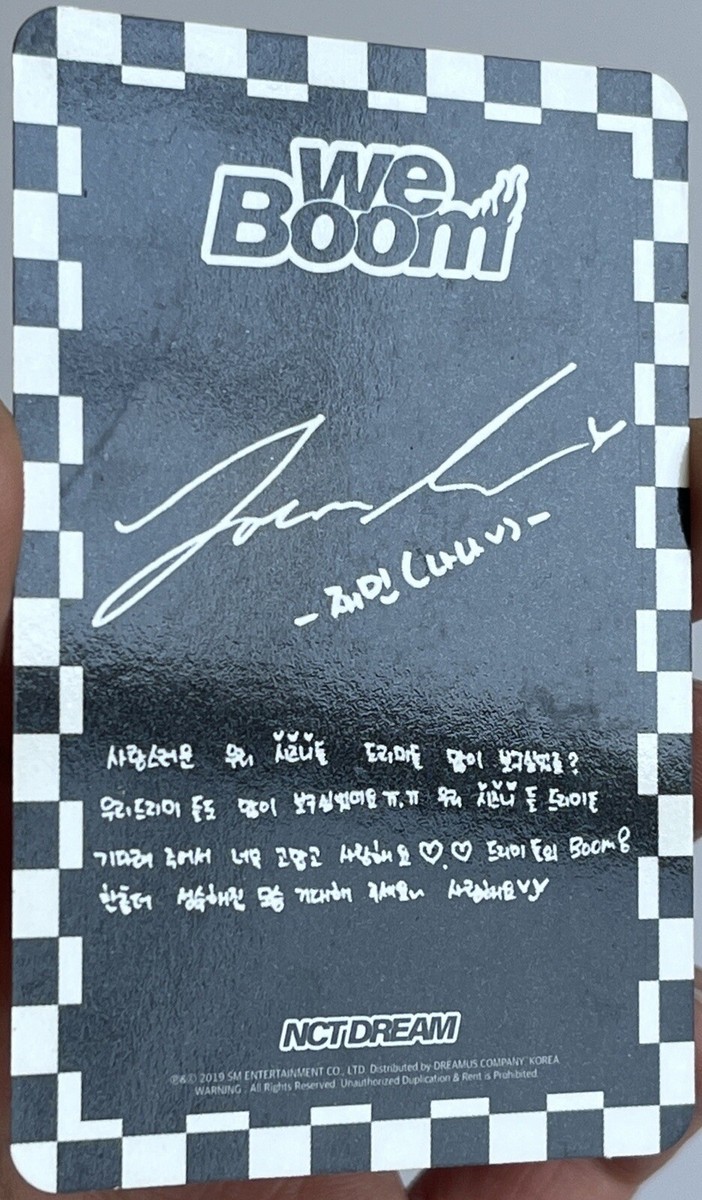 We
Boom
Jaemin
- 재민 (나나♡) -
사랑스러운 우리 시즈니들 드리미들 많이 보구싶었죠?
우리드리미 들도 많이 보구싶었어요 ㅠ.ㅠ 우리 시즈니 들 드리미들
기다려 주어서 너무 고맙고 사랑해요 ♡.♡ 드리미들의 Boom으로
한층더 성숙해진 모습 기대해 주세요~ 사랑해요♡
NCT DREAM
℗&© 2019 SM ENTERTAINMENT CO., LTD. Distributed by DREAMUS COMPANY. KOREA
WARNING : All Rights Reserved. Unauthorized Duplication & Rent is Prohibited.